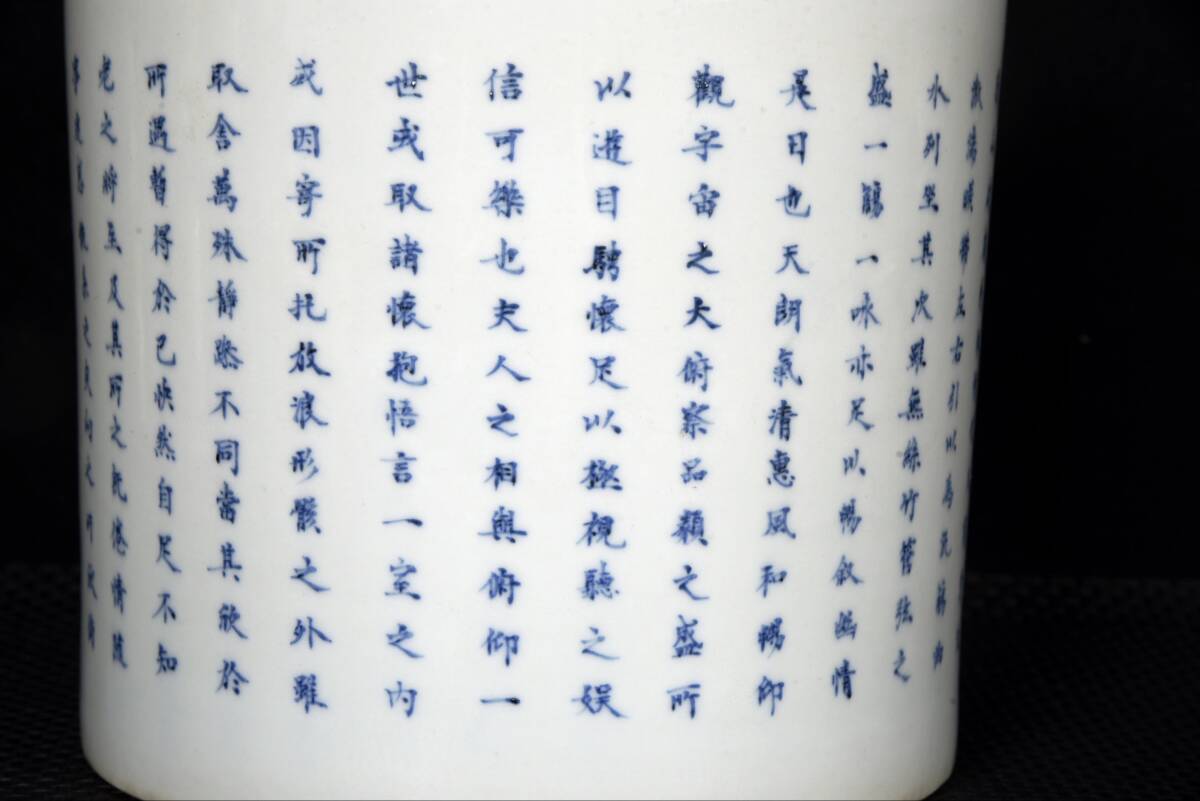 激湍暎帶左右引以為流觴曲
水列坐其次雖無絲竹管弦之
盛一觴一咏亦足以暢叙幽情
是日也天朗氣清惠風和暢仰
觀宇宙之大俯察品類之盛所
以遊目騁懷足以極視聽之娛
信可樂也夫人之相與俯仰一
世或取諸懷抱悟言一室之内
或因寄所托放浪形骸之外雖
取舍萬殊靜躁不同當其欣於
所遇暫得於己快然自足不知
老之將至及其所之既惓情隨
事遷感慨係之矣向之所欣俛